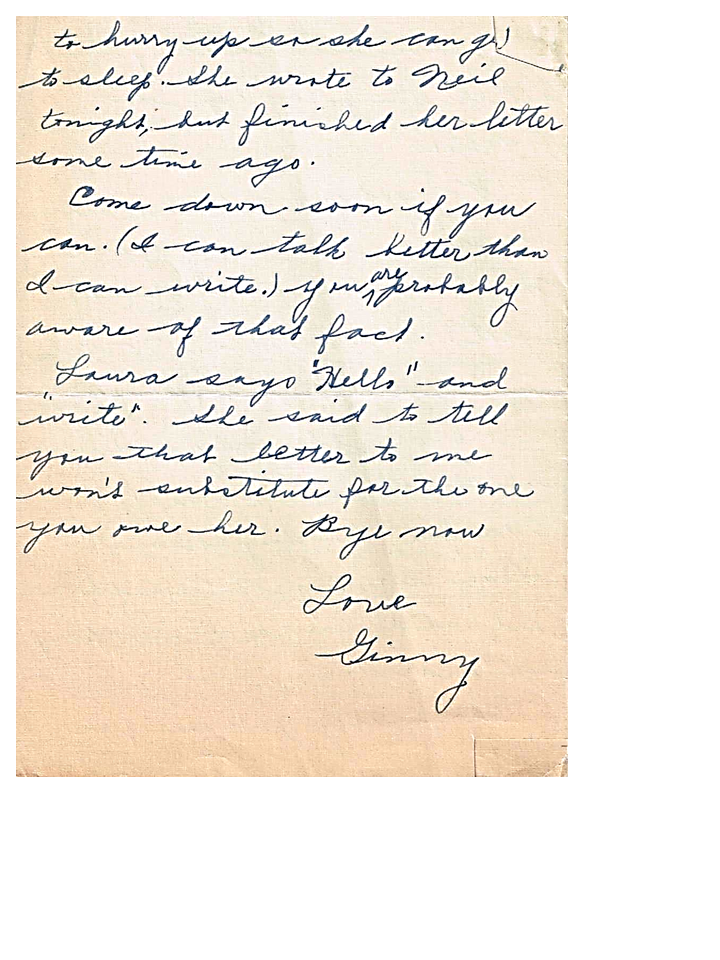 to hurry up so she can go
to sleep. She wrote to Neil
tonight, but finished her letter
some time ago.
Come down soon if you
can. (I can talk better than
I can write.) You are probably
aware of that fact.
Laura says "Hello" and
"write". She said to tell
you that letter to me
won't substitute for the one
you owe her. Bye now
Love
Ginny